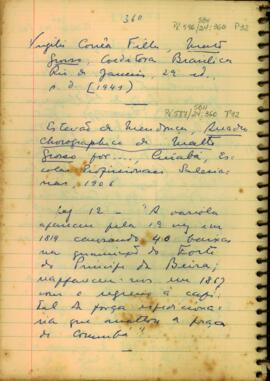 360
SBN
P(576/24:360 P32
Virgilio Corrêa Filho, Matto
Grosso, Coeditora Brasilica
Rio de Janeiro, 2ª ed.
s. d. [1941]
SBN
24:360 P32
Estevão de Mendonça, Quadro
Chorographico de Matto
Grosso por..., Cuiabá, Es-
colas Profissionaes Salesia-
nas, 1906
Pag 12 - "A variola
appareceu pela 1ª vez em
1819 causando 40 baixas
na guarnição do Forte
do Principe da Beira;
reappareceu-nos em 1867
com o regresso á capi-
tal da força expediciona-
ria que a praça
de Corumbá"